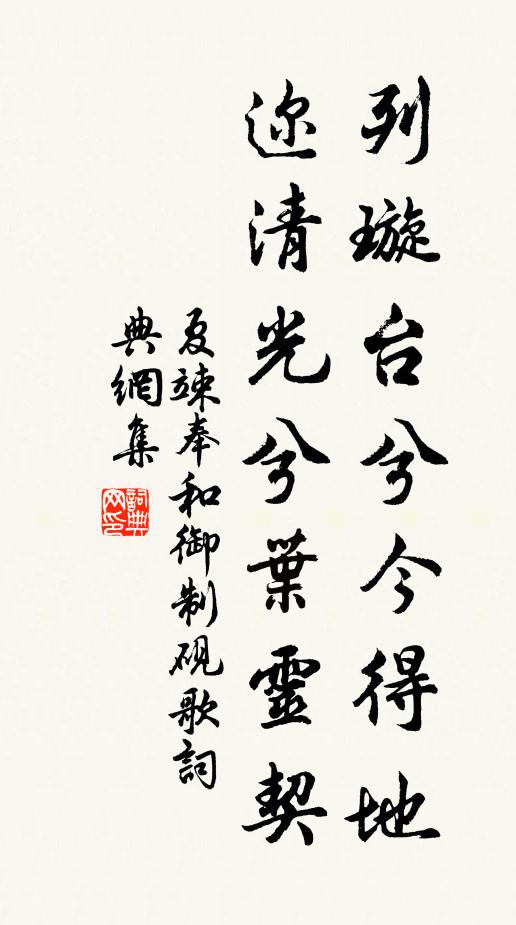 列璇台兮今得地
迩清光兮葉靈契
夏竦奉和御制硯歌詞
典網集
詞典
网印